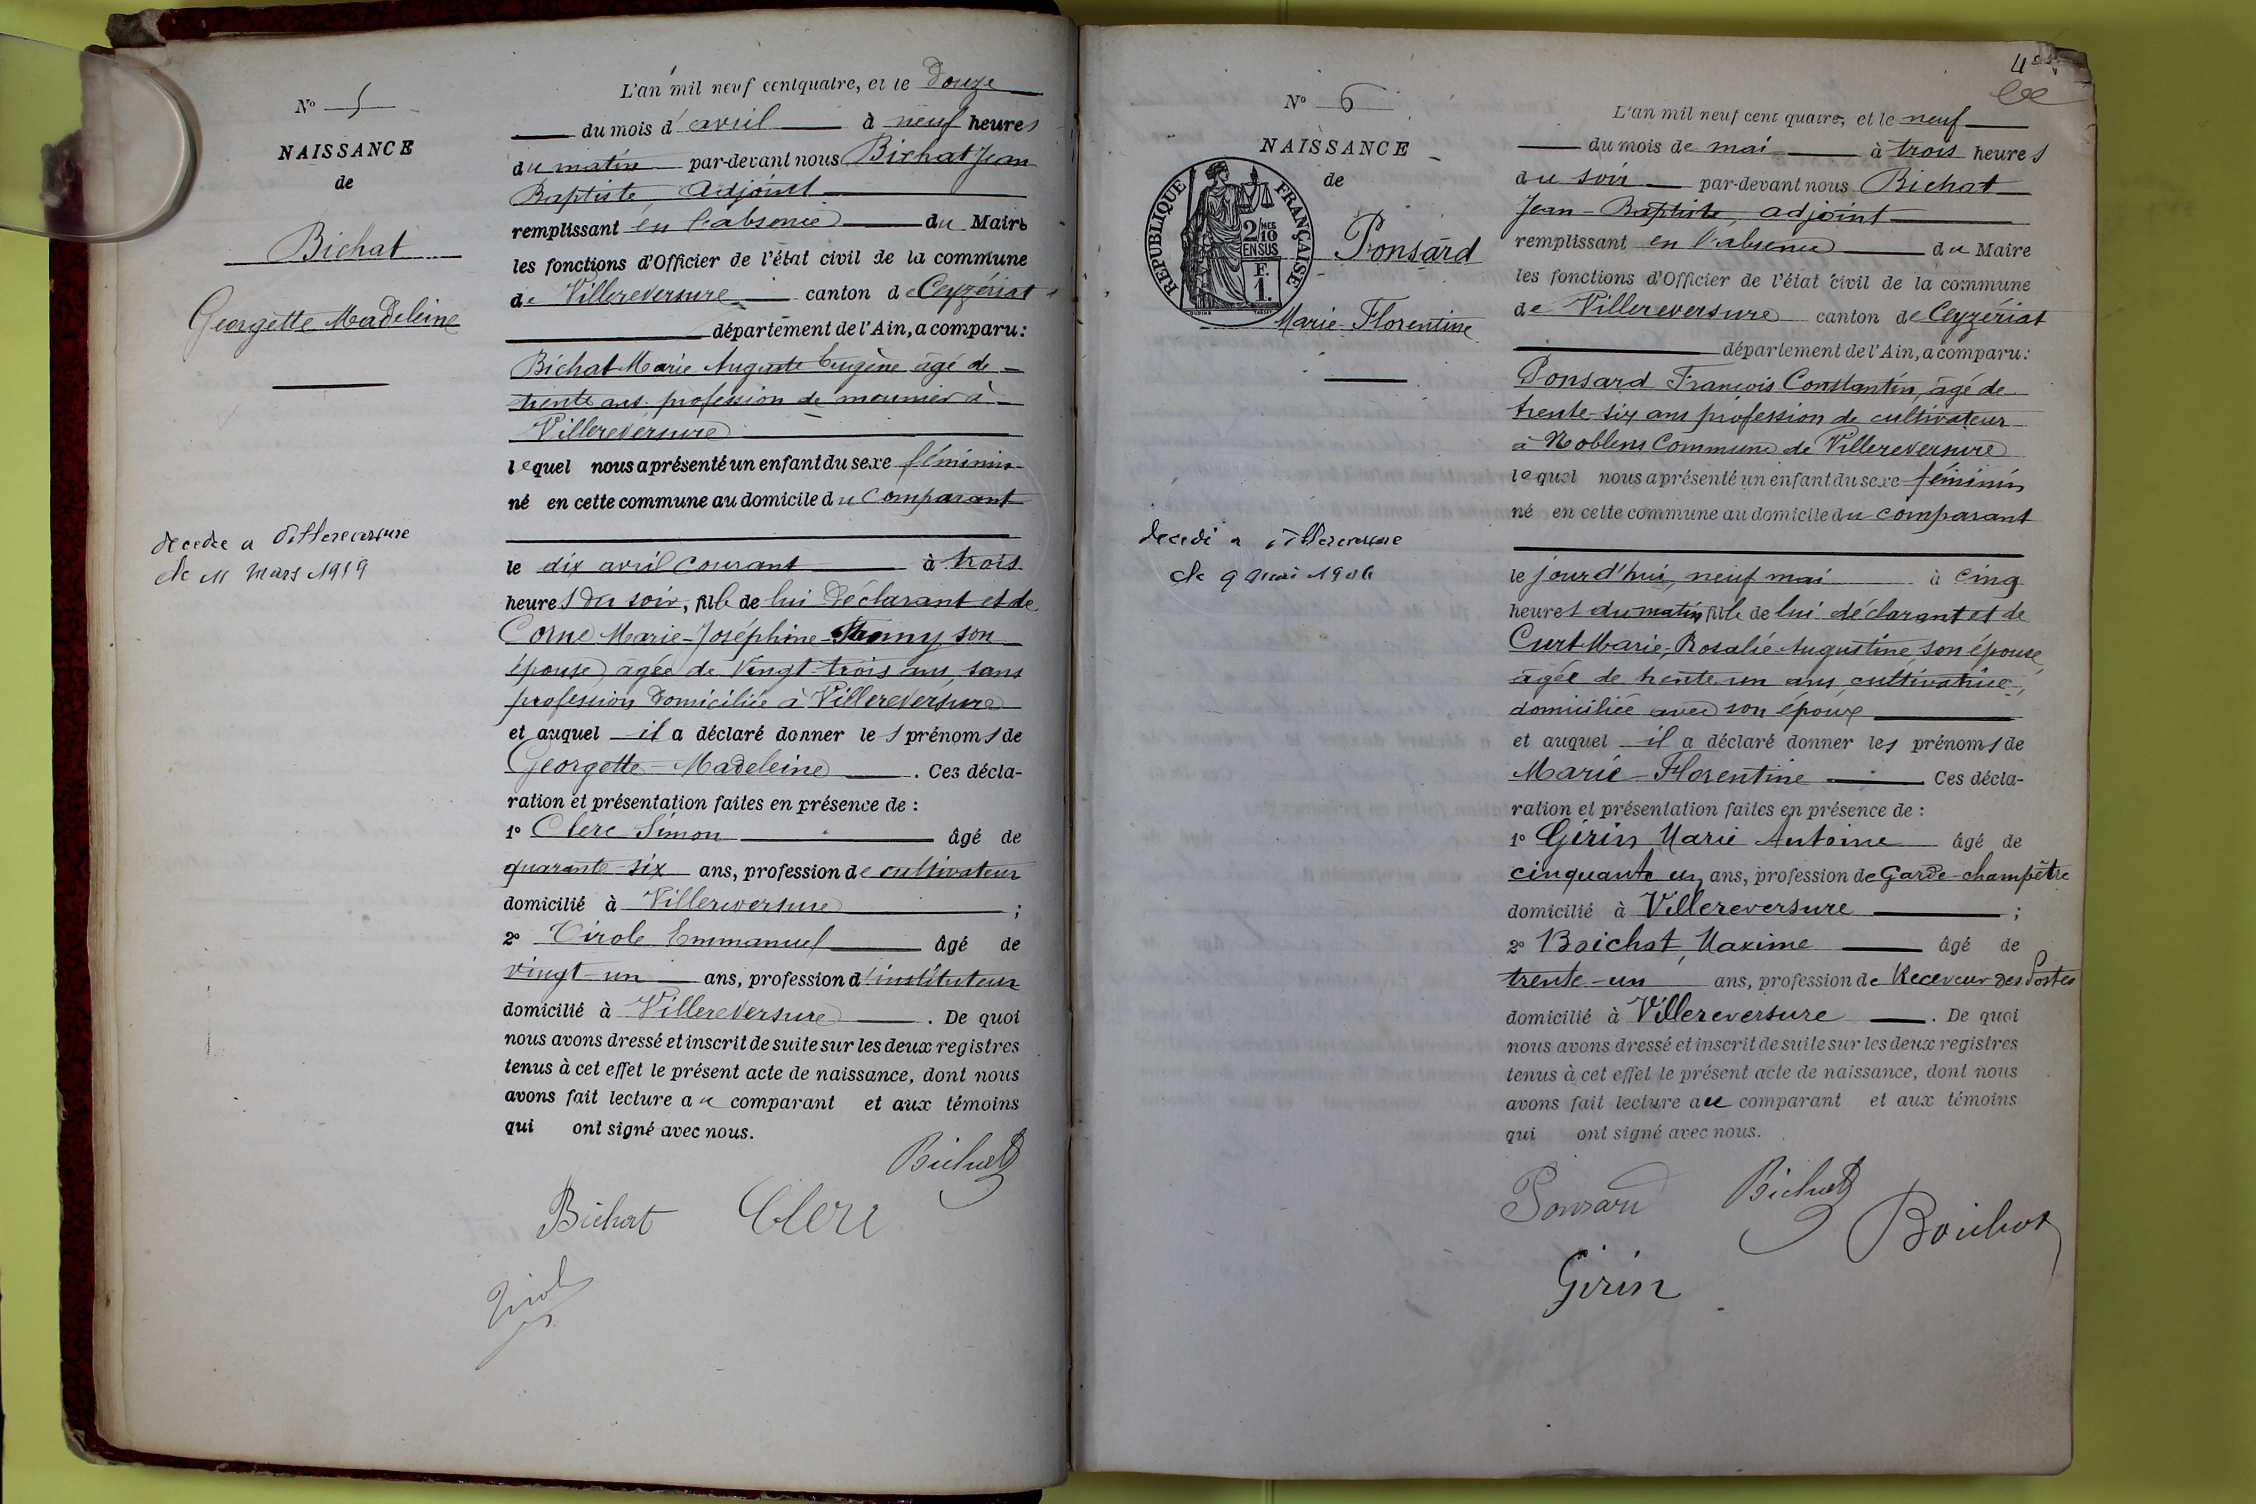 N° 5
NAISSANCE
de
Bichat
Georgette Madeleine
décédée a Villereversure
le 11 mars 1919
L'an mil neuf cent quatre, et le Douze
du mois d'avril à neuf heures
du matin par-devant nous Bichat Jean
Baptiste Adjoint
remplissant en l'absence du Maire
les fonctions d'Officier de l'état civil de la commune
de Villereversure canton de Ceyzériat
département de l'Ain, a comparu:
Bichat Marie Auguste Eugène âgé de
trente ans profession de meunier à
Villereversure
lequel nous a présenté un enfant du sexe féminin
né en cette commune au domicile du Comparant
le dix avril courant à trois
heures du soir, fille de lui Déclarant et de
Corne Marie-Joséphine-Fanny son
épouse âgée de Vingt-trois ans, sans
profession domiciliée à Villereversure
et auquel il a déclaré donner les prénoms de
Georgette-Madeleine. Ces décla-
ration et présentation faites en présence de :
1° Clerc Simon âgé de
quarante-six ans, profession de cultivateur
domicilié à Villereversure ;
2° Tirole Emmanuel âgé de
vingt-un ans, profession d'instituteur
domicilié à Villereversure. De quoi
nous avons dressé et inscrit de suite sur les deux registres
tenus à cet effet le présent acte de naissance, dont nous
avons fait lecture au comparant et aux témoins
qui ont signé avec nous.
Bichat
Bichat Clerc
4
N° 6
NAISSANCE
de
REPUBLIQUE FRANÇAISE
2/10 MES
EN SUS
F.
1.
Ponsard
Marie-Florentine
décédé a Villereversure
le 9 mai 1906
L'an mil neuf cent quatre, et le neuf
du mois de mai à trois heures
du soir par-devant nous Bichat
Jean-Baptiste, adjoint
remplissant en l'absence du Maire
les fonctions d'Officier de l'état civil de la commune
de Villereversure canton de Ceyzériat
département de l'Ain, a comparu:
Ponsard François Constantin, âgé de
trente-six ans profession de cultivateur
à Noblens Commune de Villereversure
lequel nous a présenté un enfant du sexe féminin
né en cette commune au domicile du comparant
le jourd'hui, neuf mai à cinq
heures du matin, fille de lui déclarant et de
Curt Marie-Rosalie-Augustine, son épouse,
âgée de trente-un ans, cultivatrice,
domiciliée avec son époux
et auquel il a déclaré donner les prénoms de
Marie-Florentine Ces décla-
ration et présentation faites en présence de :
1° Girin Marie Antoine âgé de
cinquante un ans, profession de Garde-champêtre
domicilié à Villereversure ;
2° Boichot, Maxime âgé de
trente-un ans, profession de Receveur des Postes
domicilié à Villereversure. De quoi
nous avons dressé et inscrit de suite sur les deux registres
tenus à cet effet le présent acte de naissance, dont nous
avons fait lecture au comparant et aux témoins
qui ont signé avec nous.
Ponsard Bichat
Boichot
Girin